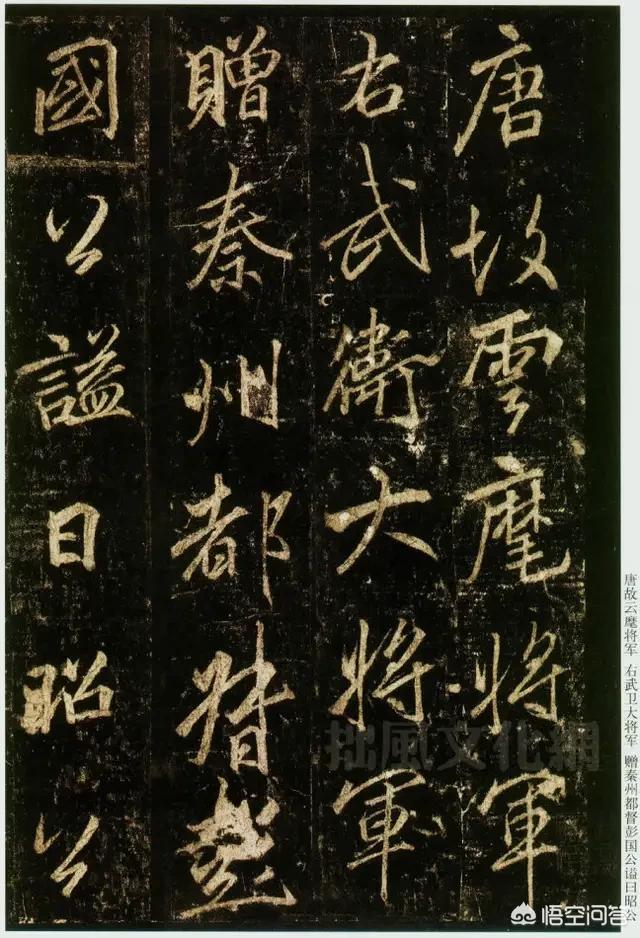 唐故雲麾將軍
右武衛大將軍
贈秦州都督彭
國公謚曰昭公
唐故云麾将军 右武卫大将军 赠秦州都督彭国公谥曰昭公
拙風文化網
悟空问答